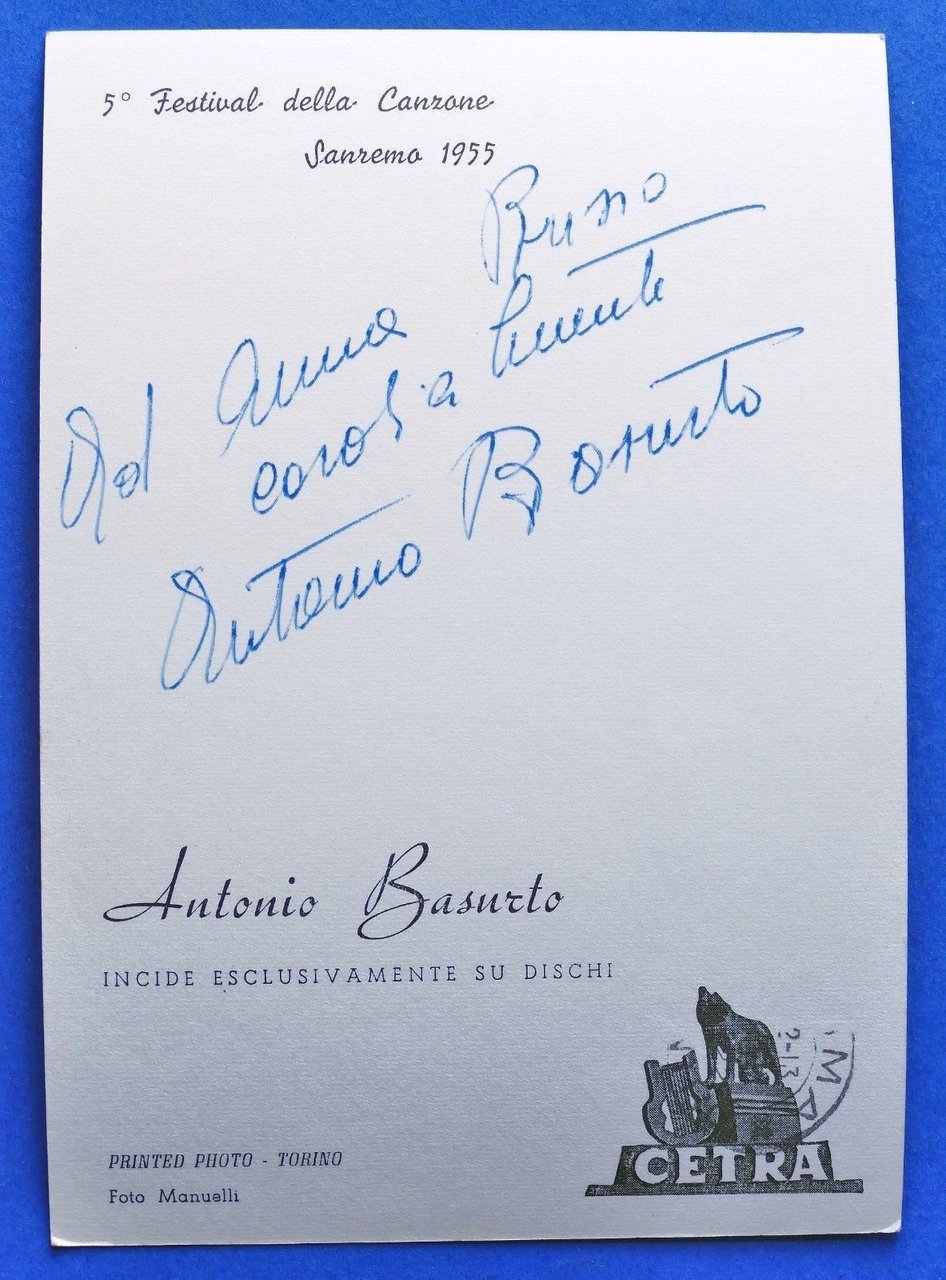 5° Festival della Canzone
Sanremo 1955
Ad Anna Bruno
cordialmente
Antonio Basurto
Antonio Basurto
INCIDE ESCLUSIVAMENTE SU DISCHI
CETRA
PRINTED PHOTO - TORINO
Foto Manuelli